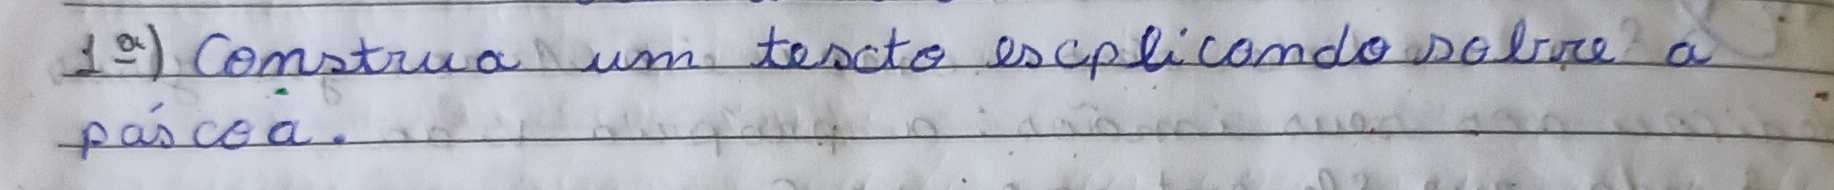 1ª) Construa um texcto excplicando sobre a
páscoa.